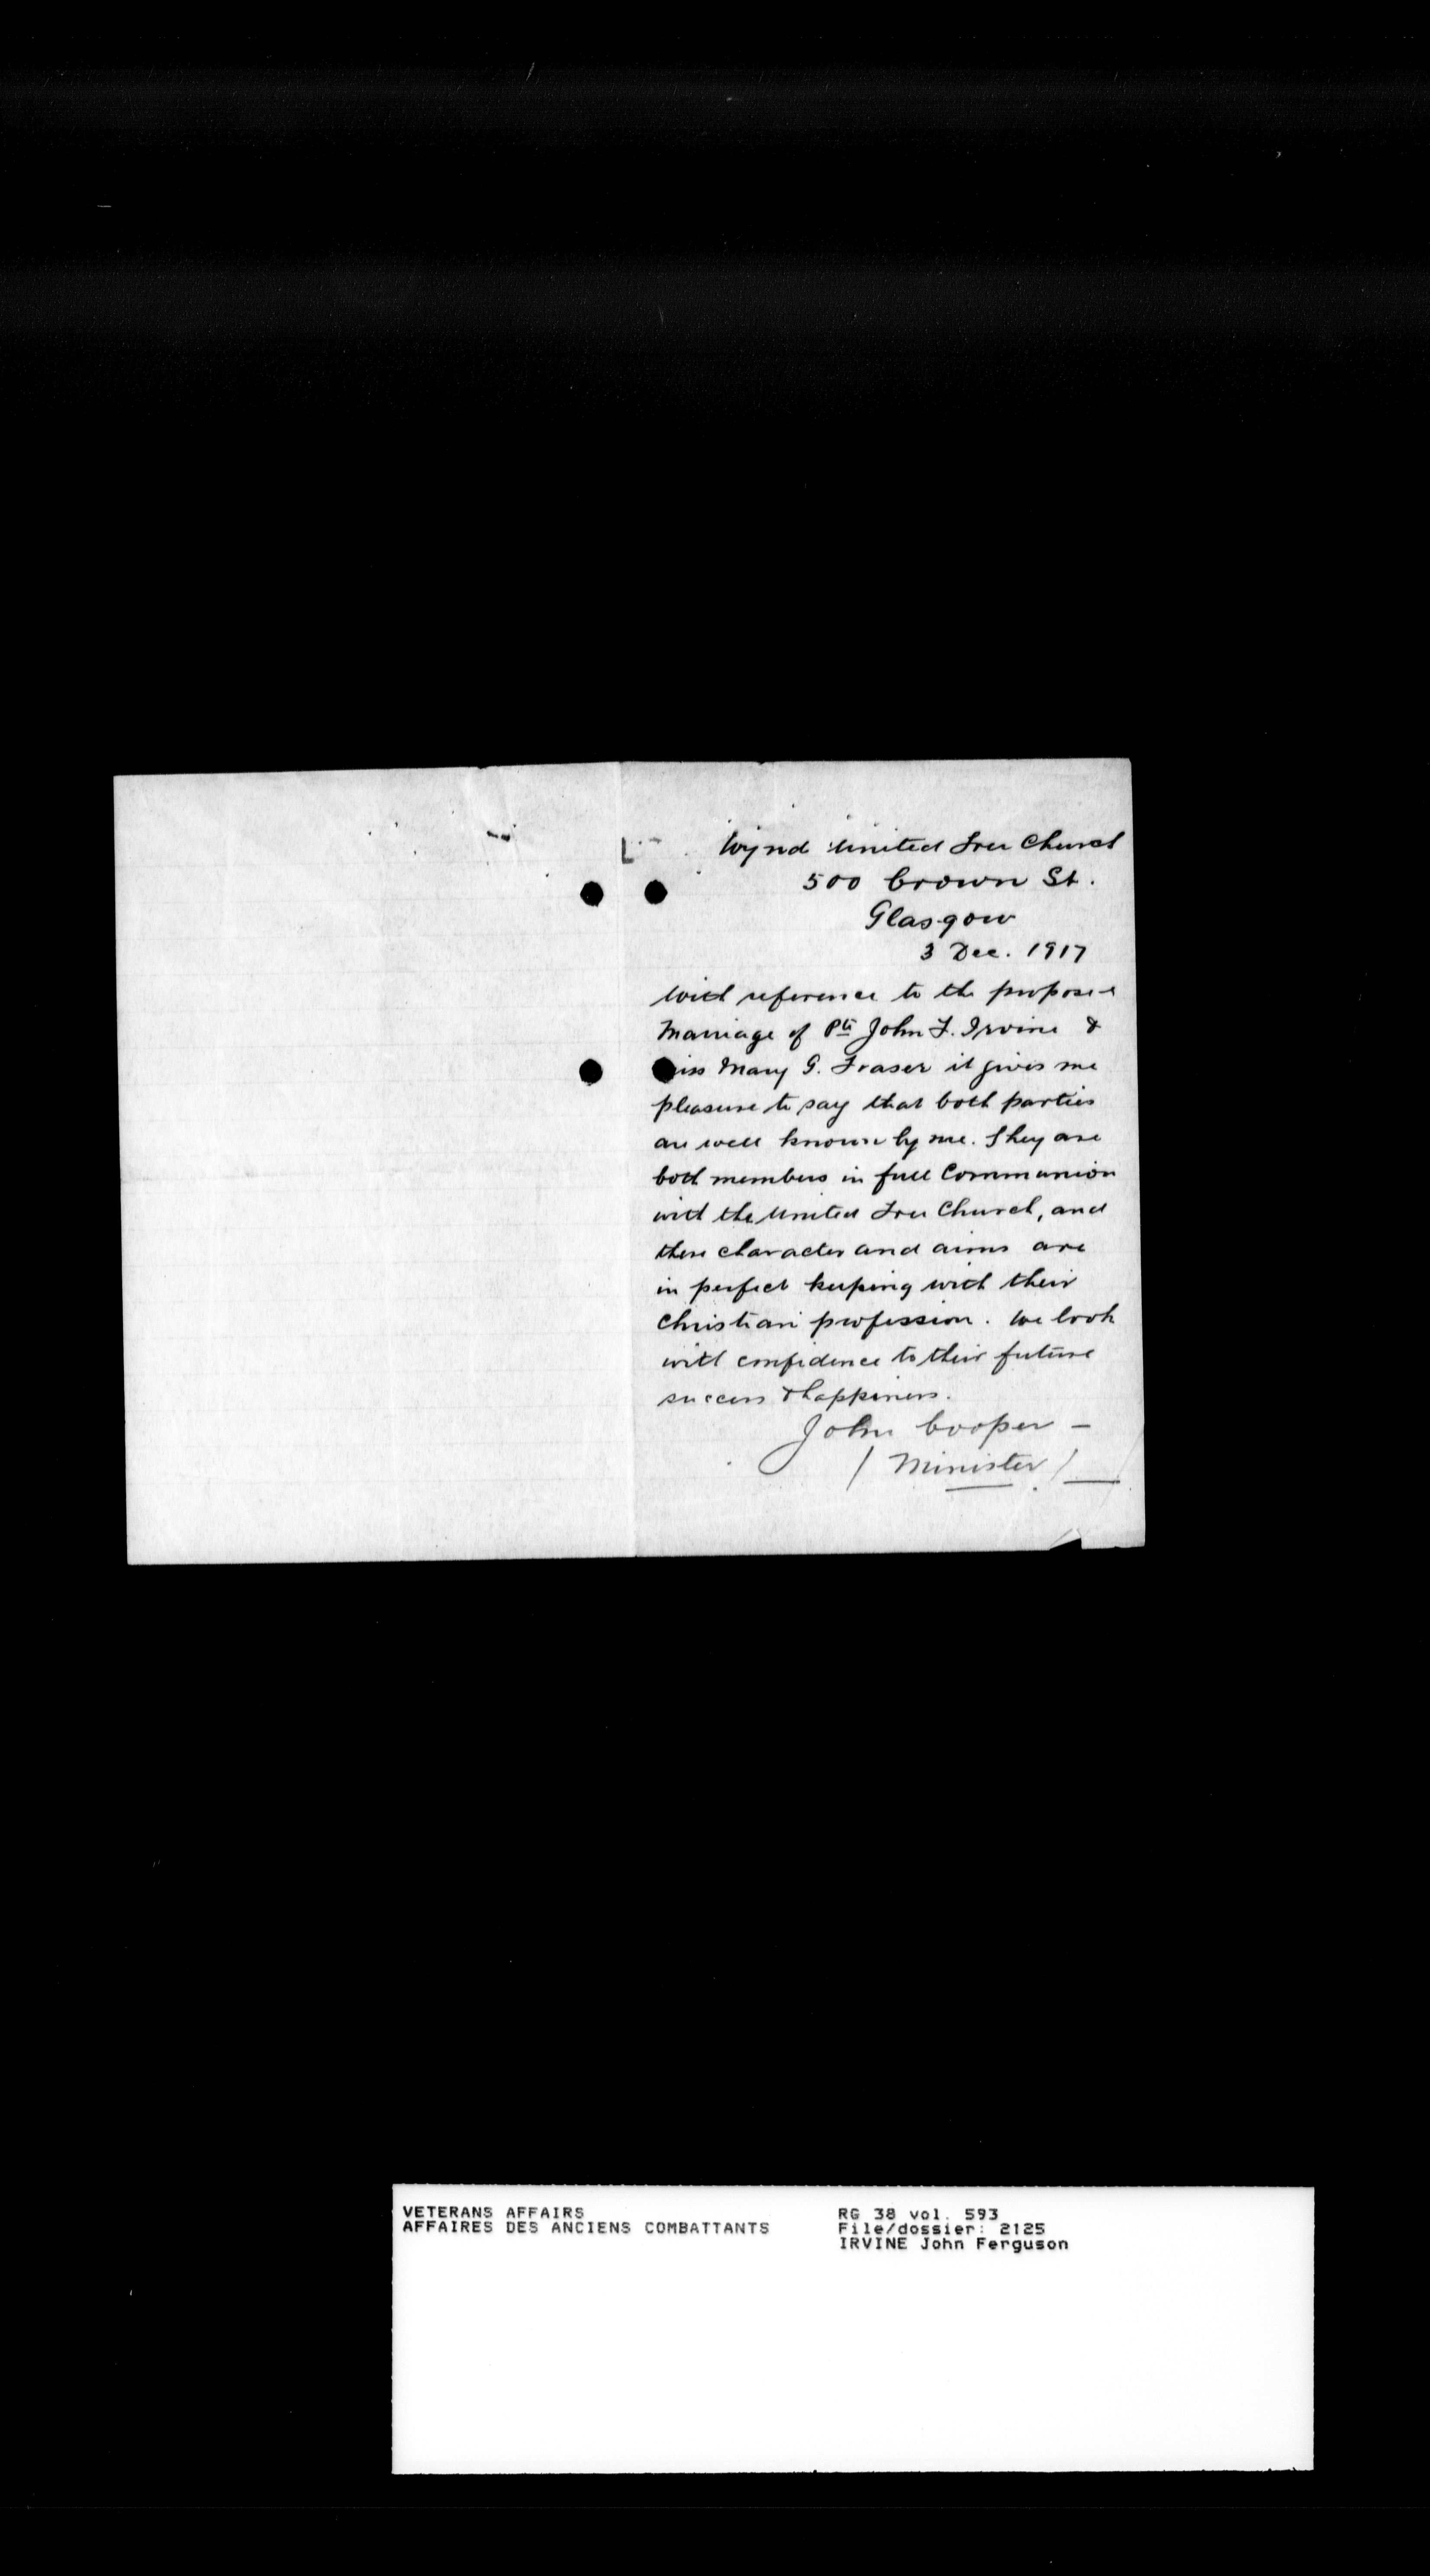 Wynd United Free Church
500 Crown St.
Glasgow
3 Dec. 1917
With reference to the proposed
Marriage of Pte John F. Irvine &
Miss Mary G. Fraser it gives me
pleasure to say that both parties
are well known by me. They are
both members in full Communion
with the United Free Church, and
there character and aims are
in perfect keeping with their
Christian profession. We look
with confidence to their future
success & happiness.
John Cooper -
/ Minister /
VETERANS AFFAIRS
AFFAIRES DES ANCIENS COMBATTANTS
RG 38 vol. 593
File/dossier: 2125
IRVINE John Ferguson